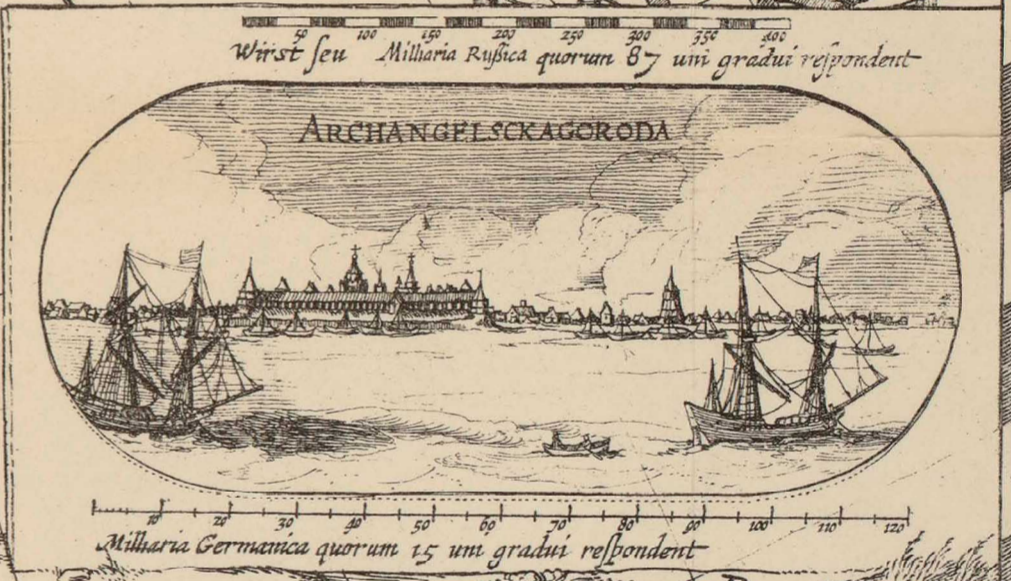 50 100 150 200 250 300 350 400
Wirst ſeu Milliaria Rußica quorum 87 uni gradui reſpondent
ARCHANGELSCKAGORODA
10 20 30 40 50 60 70 80 90 100 110 120
Milliaria Germanica quorum 15 uni gradui reſpondent